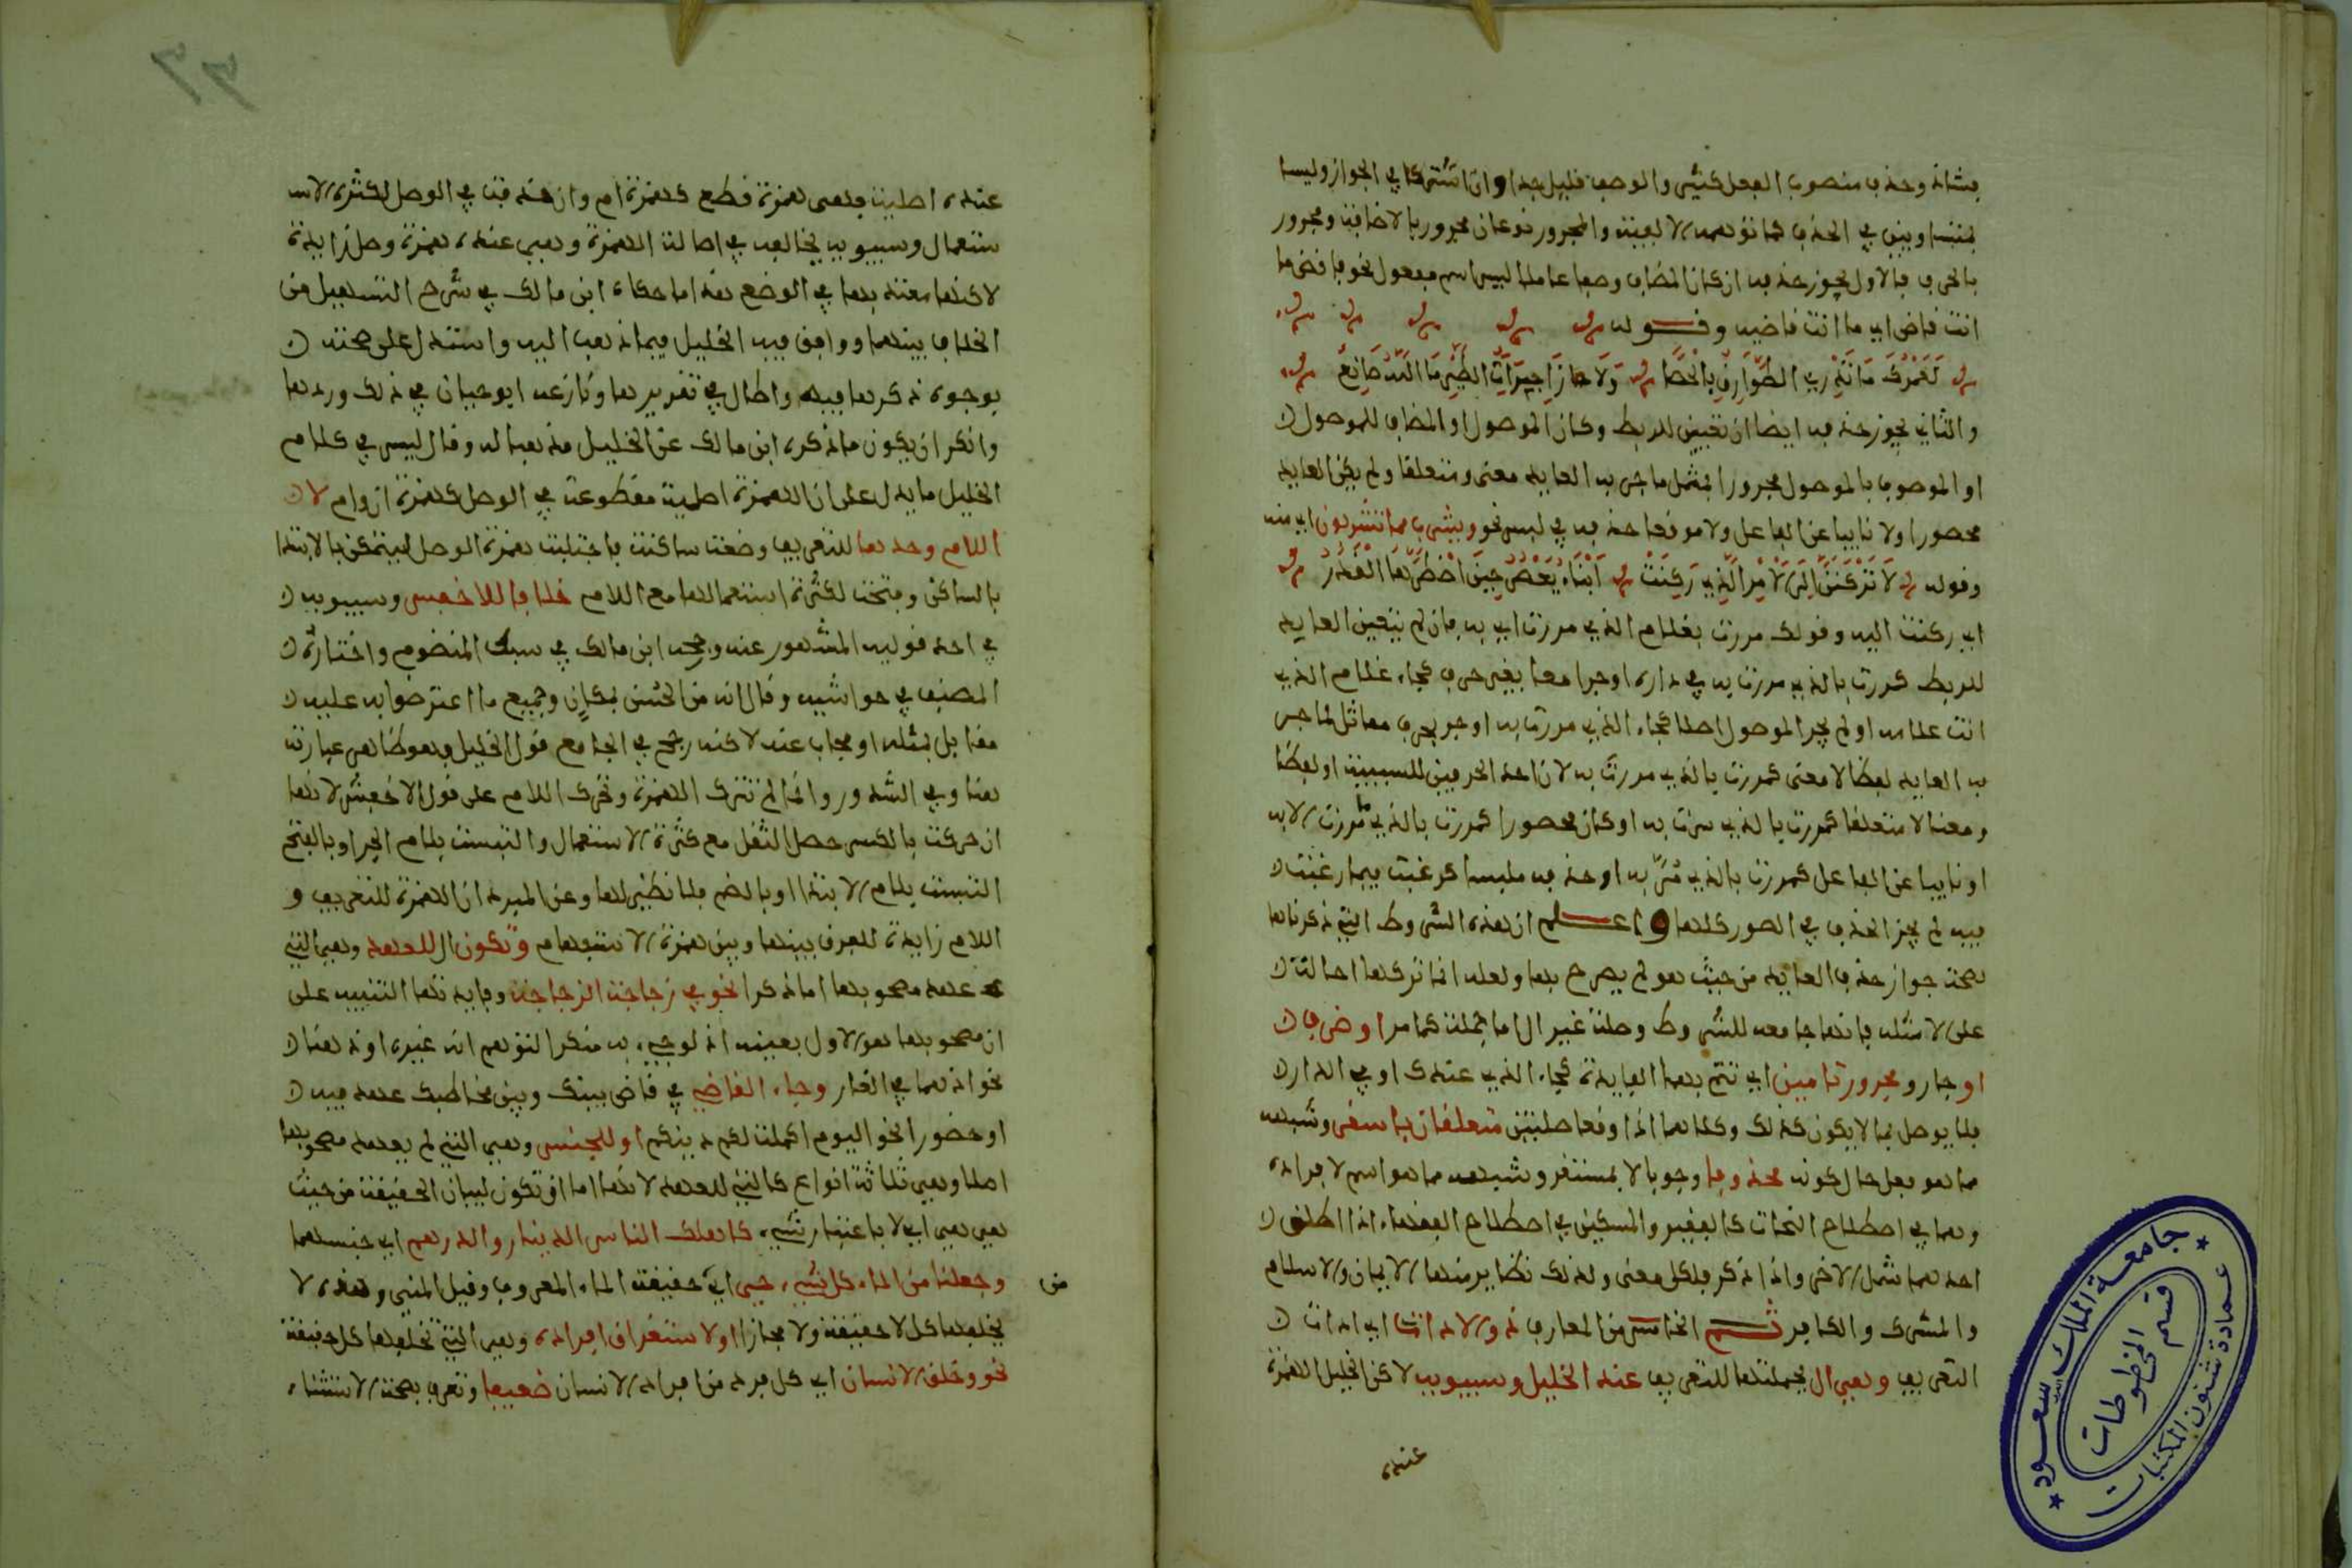 بشانه وحذف منصوب الفعل كثير والوصف قليل جدا وان اشتركا في الجواز وليسا
بمتساويين في الحذف كما توهمه الالفية والمجرور نوعان مجرور بالاضافة ومجرور
بالحرف فالاول يجوز حذفه ان كان المضاف وصفا عاملا ليس اسم مفعول نحو فاقض ما
انت قاض اي ما انت قاضيه وقوله
لَعَمْرُكَ مَا تَدْرِي الطَّوَارِقُ بِالْحَصَا وَلَا زَاجِرَاتُ الطَّيْرِ مَا اللَّهُ صَانِعُ
والثاني يجوز حذفه ايضا ان تعين للربط وكان الموصول او المضاف للموصول
او الموصوف بالموصول مجرورا بمثل ما جر به العايد معنى ومتعلقا ولم يكن العايد
محصورا ولا نايبا عن الفاعل ولا موقعا حذفه في لبس نحو ويشرب مما تشربون اي منه
وقوله لَا تَرْكَنَنَّ اِلَى الْاَمْرِ الَّذِي رَكِنَتْ اَبْنَاءُ يَعْصُرَ حِينَ اضْطَرَّهَا الْقَدَرُ
اي ركنت اليه وقولك مررت بغلام الذي مررت اي به فان لم يتعين العايد
للربط كررت بالذي مررت به في داره او جرا معا بغير حرف كجاء غلام الذي
انت غلامه او لم يجر الموصول اصلا كجاء الذي مررت به او جر بحرف مماثل لما جر
به العايد لفظا لا معنى كمررت بالذي مررت به لان احد الحرفين للسببية او لفظا
ومعنا لا متعلقا كمررت بالذي سرت به او كان محصورا كمررت بالذي ما مررت الا به
او نايبا عن الفاعل كمررت بالذي مُرَّ به او حذفه ملبسا كرغبت فيما رغبت
فيه لم يجز الحذف في الصور كلها واعلم ان هذه الشروط التي ذكرناها
لصحت جواز حذف العايد من حيث هو لم يصرح بها ولعله انما تركها احالة
على الامثلة فانها جامعه للشروط وصلة غير ال اما جملة كما مر او ظرف
او جار ومجرور تامين اي تتم بهما الفايدة كجاء الذي عندك او في الدار
فلا يوصل بما لا يكون كذلك وكلاهما اذا وقعا صلتين متعلقان باستقر وشبهه
مما هو فعل حال كونه محذوفا وجوبا لا بمستقر وشبهه مما هو اسم لافراده
وهما في اصطلاح النحات كالفقير والمسكين في اصطلاح الفقهاء اذا اطلق
احدهما شمل الاخر واذا ذكر فلكل معنى ولذلك نظاير منها الايمان والاسلام
والمشرك والكافر ثم الخامس من المعارف ذو الاداة اي اداة
التعريف وهي ال بجملتها للتعريف عند الخليل وسيبويه لاكن الخليل الهمزة
عنده
عنده اصلية فهي همزة قطع كهمزة ام وان حذفت في الوصل لكثرة الاسـ
ستعمال وسيبويه يخالفه في اصالة الهمزة وهي عنده همزة وصل زايدة
لاكنها معتد بها في الوضع هذا ما حكاه ابن مالك في شرح التسهيل من
الخلاف بينهما ووافق فيه الخليل فيما ذهب اليه واستدل على صحته
بوجوه ذكرها فيه واطال في تقريرها ونازعه ابو حيان في ذلك وردها
وانكر ان يكون ما ذكره ابن مالك عن الخليل مذهبا له وقال ليس في كلام
الخليل ما يدل على ان الهمزة اصلية مقطوعة في الوصل كهمزة ان وام لا
اللام وحدها للتعريف وضعت ساكنة فاجتلبت همزة الوصل ليتمكن بالابتدا
بالساكن وفتحت لكثرة استعمالها مع اللام خلافا للاخفش وسيبويه
في احد قوليه المشهور عنه ورجحه ابن مالك في سبك المنضوم واختاره
المصنف في حواشيه وقال انه من الحسن بمكان وجميع ما اعترضوا به عليه
مقابل بمثله او مجاب عنه لاكنه رجح في الجامع قول الخليل وهو ظاهر عبارته
هنا وفي الشذور وانما لم تترك الهمزة وتحرك اللام على قول الاخفش لانها
ان حركت بالكسر حصل الثقل مع كثرة الاستعمال والتبست بلام الجر او بالفتح
التبست بلام الابتدا او بالضم فلا نظير لها وعن المبرد ان الهمزة للتعريف و
اللام زايدة للفرق بينها وبين همزة الاستفهام وتكون ال للعهد وهي التي
عهد مصحوبها اما ذكرا نحو في زجاجة الزجاجة وفايدتها التنبيه على
ان مصحوبها هو الاول بعينه اذ لو جيء به منكرا لتوهم انه غيره او ذهنا
نحو اذ هما في الغار وجاء القاضي في قاض بينك وبين مخاطبك عهد فيه
او حضورا نحو اليوم اكملت لكم دينكم او للجنس وهي التي لم يعهد مصحوبها
اصلا وهي ثلاثة انواع كالتي للعهد لانها اما ان تكون لبيان الحقيقة من حيث
هي هي اي لا باعتبار شيء كاهلك الناس الدينار والدرهم اي جنسهما
وجعلنا من الماء كل شيء حيي اي من حقيقة الماء المعروف وقيل المني وهذه لا
يخلفها كل لا حقيقة ولا مجازا او لاستغراق افراده وهي التي تخلفها كل حقيقة
نحو وخلق الانسان اي كل فرد من افراد الانسان ضعيفا وتعرف بصحة الاستثناء
جامعة الملك سعود
عمادة شئون المكتبات
قسم المخطوطات